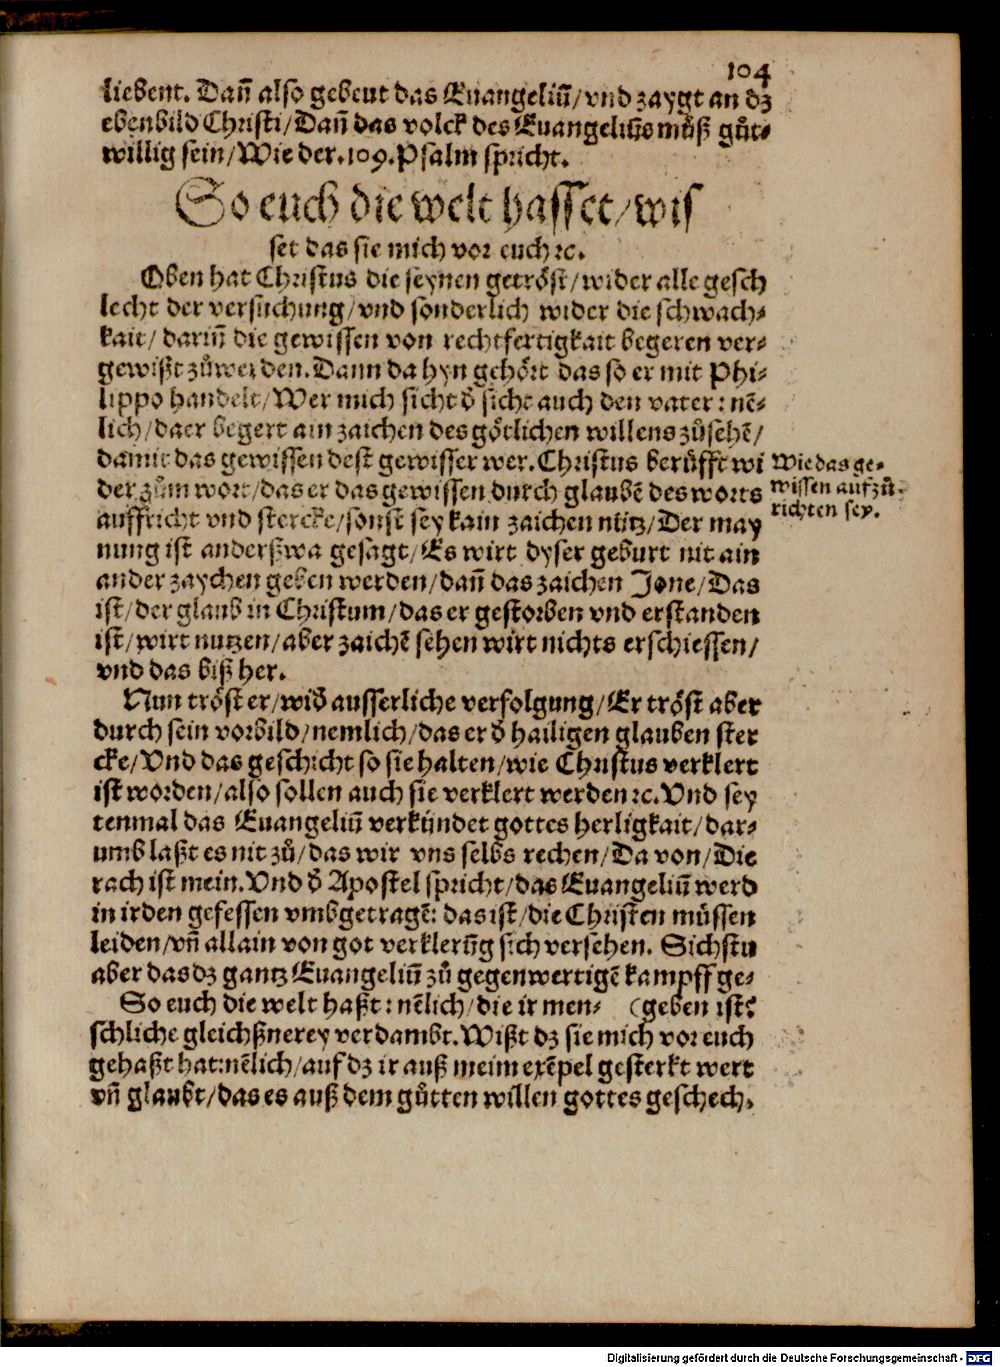 104
liebent. Dañ also gebeut das Euangeliũ/vnd zaygt an dz
ebenbild Christi/Dañ das volck des Euangeliũs můß gůt-
willig sein/Wie der .109. Psalm spricht.
So euch die welt hasset/wis
set das sie mich vor euch ꝛc.
Oben hat Christus die seynen getröst/wider alle gesch
lecht der versuchung/vnd sonderlich wider die schwach-
kait/dariñ die gewissen von rechtfertigkait begeren ver-
gewißt zůwerden. Dann da hyn gehört das so er mit Phi-
lippo handelt/Wer mich sicht d̕ sicht auch den vater: nẽ-
lich/da er begert ain zaichen des götlichen willens zůsehẽ/
damit das gewissen dest gewisser wer. Christus berůfft wi
der zům wort/das er das gewissen durch glaubẽ des worts
auffricht vnd stercke/sonst sey kain zaichen nütz/Der may
nung ist anderßwa gesagt/Es wirt dyser geburt nit ain
ander zaychen geben werden/dañ das zaichen Jone/Das
ist/der glaub in Christum/das er gestorben vnd erstanden
ist/wirt nutzen/aber zaichẽ sehen wirt nichts erschiessen/
vnd das biß her.
Wie das ge-
wissen aufzů-
richten sey.
Nun tröst er/wid̕ ausserliche verfolgung/Er tröst aber
durch sein vorbild/nemlich/das er d̕ hailigen glauben ster
cke/Vnd das geschicht so sie halten/wie Christus verklert
ist worden/also sollen auch sie verklert werden ꝛc. Vnd sey
tenmal das Euangeliũ verkündet gottes herligkait/dar-
umb laßt es nit zů/das wir vns selbs rechen/Da von/Die
rach ist mein. Vnd d̕ Apostel spricht/das Euangeliũ werd
in irden gefessen vmbgetragẽ: das ist/die Christen müssen
leiden/vñ allain von got verklerũg sich versehen. Sichstu
aber das dz gantz Euangeliũ zů gegenwertigẽ kampff ge-
So euch die welt haßt: nẽlich/die ir men- (geben ist?
schliche gleichßnerey verdambt. Wißt dz sie mich vor euch
gehaßt hat: nẽlich/auf dz ir auß meim exẽpel gesterkt wert
vñ glaubt/das es auß dem gůtten willen gottes geschech.
Digitalisierung gefördert durch die Deutsche Forschungsgemeinschaft - DFG